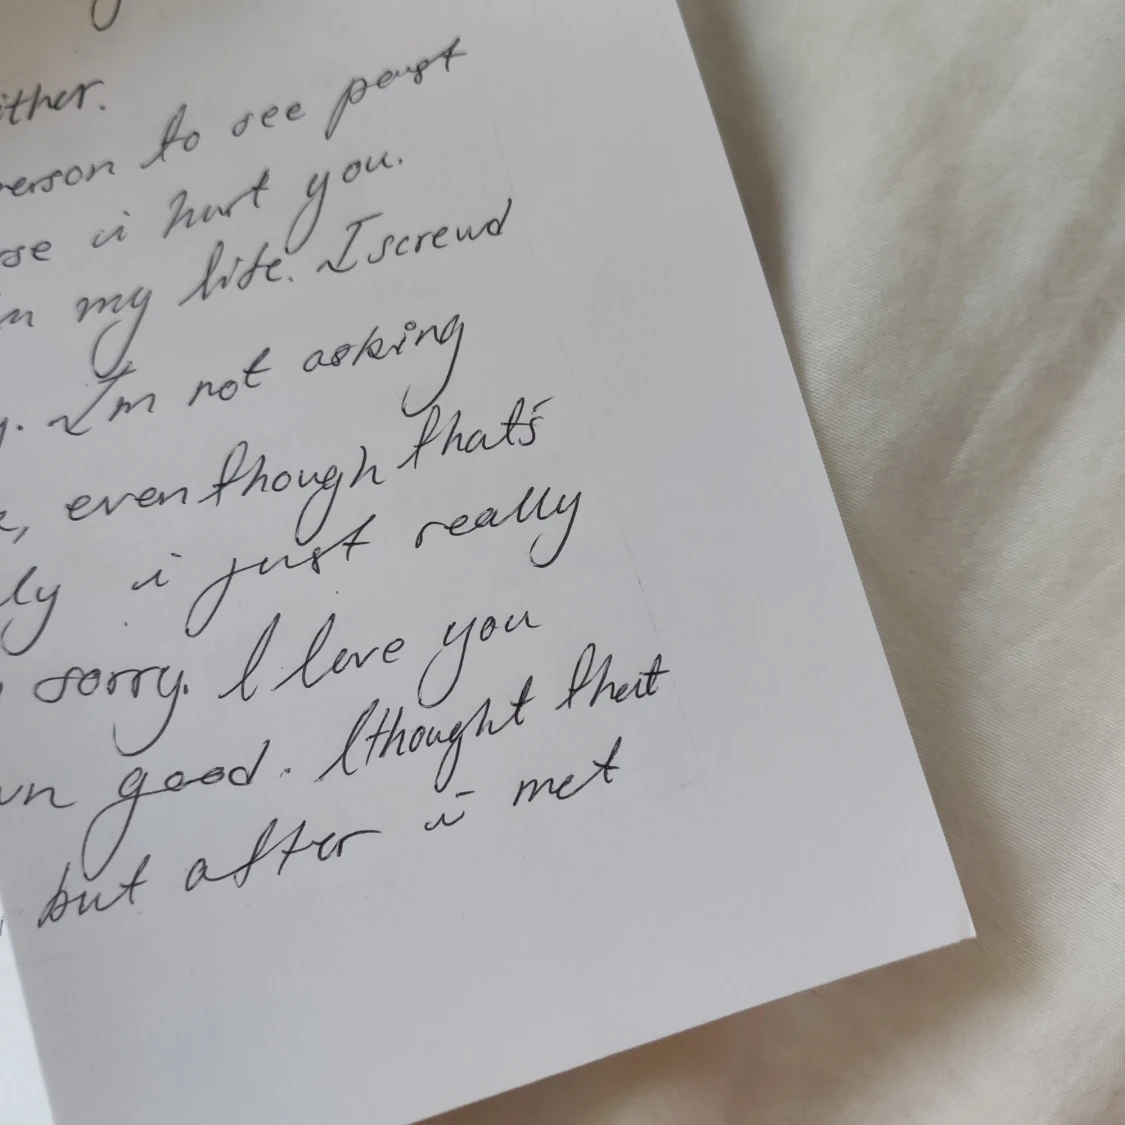 ither.
erson to see past
se i hurt you.
in my life. I screwd
. I'm not asking
, even though that's
ly i just really
sorry. I love you
wn good. I thought that
but after i met